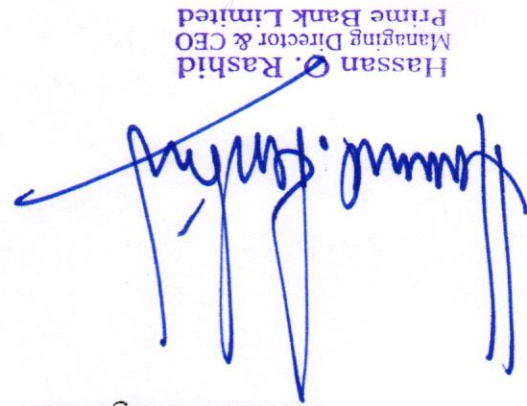 Hassan O. Rashid
Managing Director & CEO
Prime Bank Limited